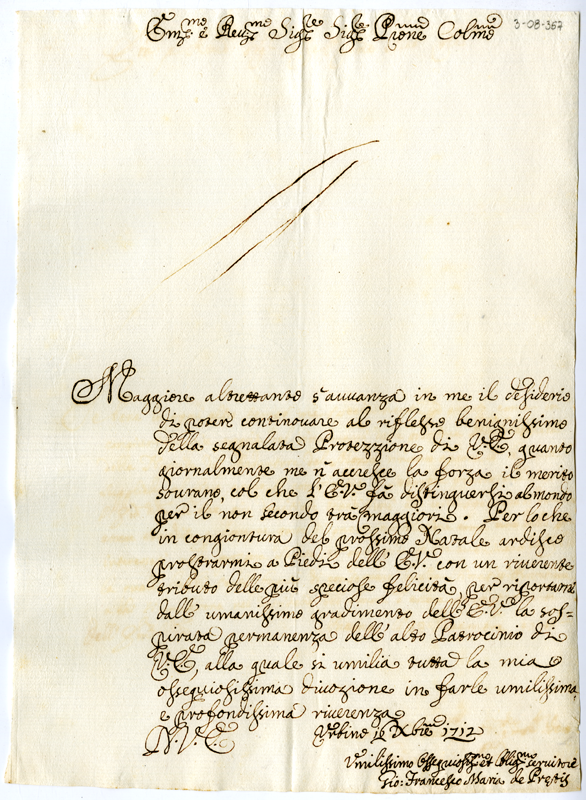 3-08-367
Em.mo e Rev.mo Sig.re Sig.re P̃rone Col.mo
Maggiore altrettanto s'avvanza in me il desiderio
di poter continovare al riflesso benignissimo
della segnalata Protezzione di V.E., quanto
giornalmente me n'accresce la forza il merito
sovrano, col che l'E.V. fà distinguersi al mondo
per il non secondo tra maggiori. Per lo che
in congiontura del prossimo Natale ardisco
prostrarmi a Piedi dell'E.V. con un riverente
tributo delle più speciose felicità, per riportarne
dall'umanissimo gradimento dell'E.V. la sos-
pirata permanenza dell'alto Patrocinio di
V.E., alla quale si umilia tutta la mia
ossequiosissima divozione in farle umilissima,
e profondissima riverenza
D.V.E. Urbino 16 Xbre 1712
Umilissimo Ossequiosis.mo et Oblig.mo servitore
Gio: Francesco Maria de